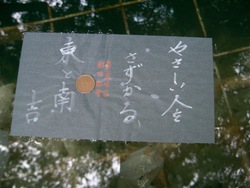 やさしい人を
さずかる
東と南
吉